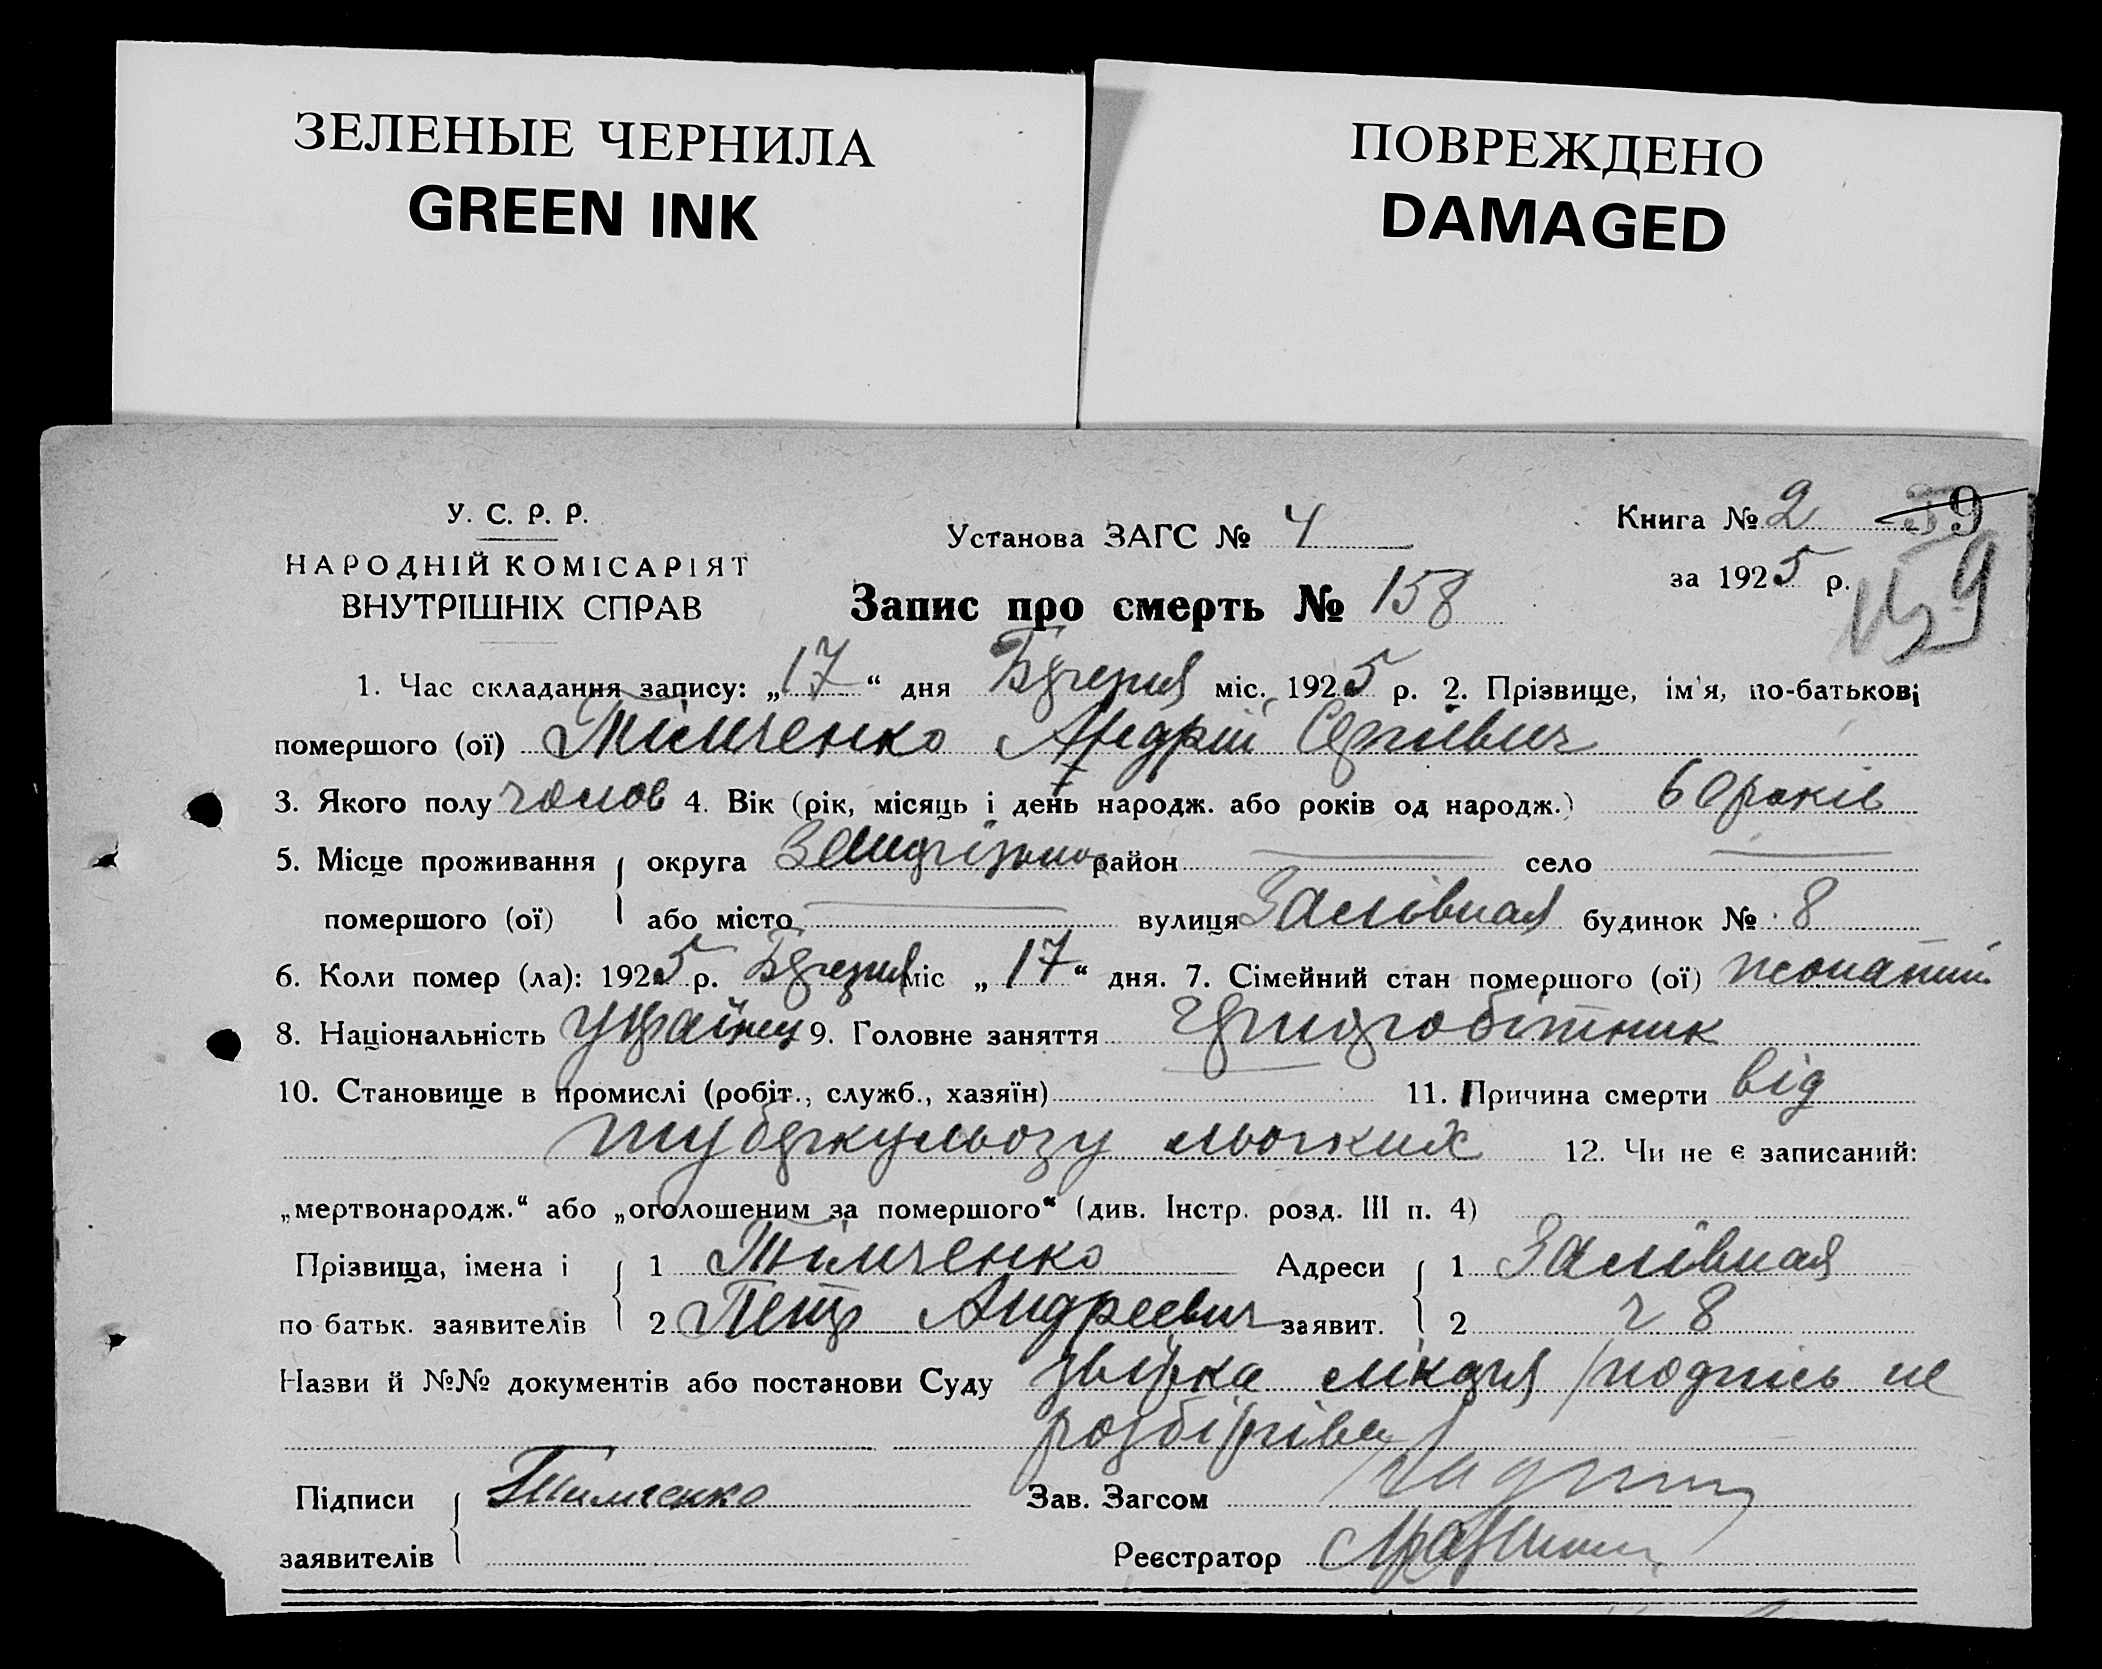 ЗЕЛЕНЫЕ ЧЕРНИЛА
GREEN INK
ПОВРЕЖДЕНО
DAMAGED
У. С. Р. Р.
НАРОДНІЙ КОМІСАРІЯТ
ВНУТРІШНІХ СПРАВ
Установа ЗАГС № 4
Книга № 2 59
за 1925 р. 159
Запис про смерть № 158
1. Час складання запису: „17“ дня Березня міс. 1925 р. 2. Прізвище, ім'я, по-батькові
помершого (ої) Тімченко Андрій Сергіевич
3. Якого полу чолов 4. Вік (рік, місяць і день народж. або років од народж.) 60 років
5. Місце проживання округа район село
помершого (ої) або місто вулиця Залівная будинок № 8
6. Коли помер (ла): 1925 р. Березня міс „17“ дня. 7. Сімейний стан помершого (ої) жонатий
8. Національність українец 9. Головне заняття
10. Становище в промислі (робіт., служб., хазяїн) 11. Причина смерти від
туберкульозу льогких 12. Чи не є записаний:
„мертвонародж.“ або „оголошеним за помершого“ (див. Інстр. розд. III п. 4)
Прізвища, імена і 1 Тімченко Адреси 1 Залівная
по батьк. заявителів 2 Петр Андреевич заявит. 2 ч 8
Назви й №№ документів або постанови Суду лікаря /подпісь не
розбірліва/
Підписи Тимченко Зав. Загсом
заявителів Реєстратор